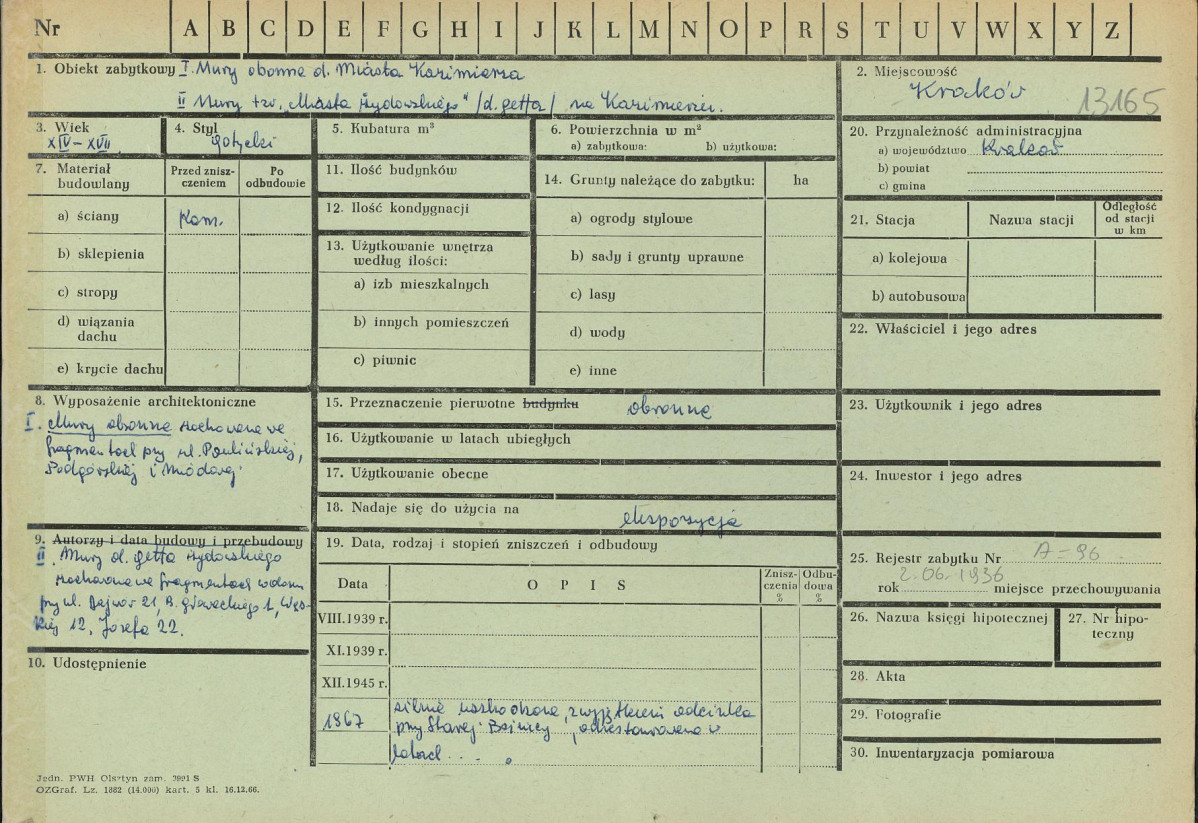 Nr A B C D E F G H I J K L M N O P R S T U V W X Y Z
1. Obiekt zabytkowy I. Mury obronne d. Miasta Kazimierza
II Mury tzw. „Miasta żydowskiego" /d. getta/ na Kazimierzu.
2. Miejscowość
Kraków 13165
3. Wiek
XIV – XVII
4. Styl
gotycki
5. Kubatura m³
6. Powierzchnia w m²
a) zabytkowa: b) użytkowa:
7. Materiał budowlany
Przed zniszczeniem
Po odbudowie
a) ściany Kam.
b) sklepienia
c) stropy
d) wiązania dachu
e) krycie dachu
11. Ilość budynków
12. Ilość kondygnacji
13. Użytkowanie wnętrza
według ilości:
a) izb mieszkalnych
b) innych pomieszczeń
c) piwnic
14. Grunty należące do zabytku: ha
a) ogrody stylowe
b) sady i grunty uprawne
c) lasy
d) wody
e) inne
20. Przynależność administracyjna
a) województwo Kraków
b) powiat
c) gmina
21. Stacja Nazwa stacji
Odległość
od stacji
w km
a) kolejowa
b) autobusowa
22. Właściciel i jego adres
8. Wyposażenie architektoniczne
I. Mury obronne zachowane we
fragmentach przy ul. Paulińskiej,
Podgórskiej i Miodowej
9. Autorzy i data budowy i przebudowy
II. Mury d. getta żydowskiego
zachowane we fragmentach
przy ul. Dajwór 21, B. Głowackiego 1, Wąs-
kiej 12, Józefa 22.
10. Udostępnienie
15. Przeznaczenie pierwotne budynku obronne
16. Użytkowanie w latach ubiegłych
17. Użytkowanie obecne
18. Nadaje się do użycia na ekspozycja
19. Data, rodzaj i stopień zniszczeń i odbudowy
Data O P I S
Znisz-
czenia
%
Odbu-
dowa
%
VIII.1939 r.
XI.1939 r.
XII.1945 r.
1967 silnie uszkodzone, z wyjątkiem odcinka
przy Starej Bożnicy, odrestaurowano w
latach . . .
23. Użytkownik i jego adres
24. Inwestor i jego adres
25. Rejestr zabytku Nr A-96
2.06.1936
rok miejsce przechowywania
26. Nazwa księgi hipotecznej
27. Nr hipo-
teczny
28. Akta
29. Fotografie
30. Inwentaryzacja pomiarowa
Jedn. PWH Olsztyn zam. 3991 S
OZGraf. Lz. 1882 (14.000) kart. 5 kl. 16.12.66.